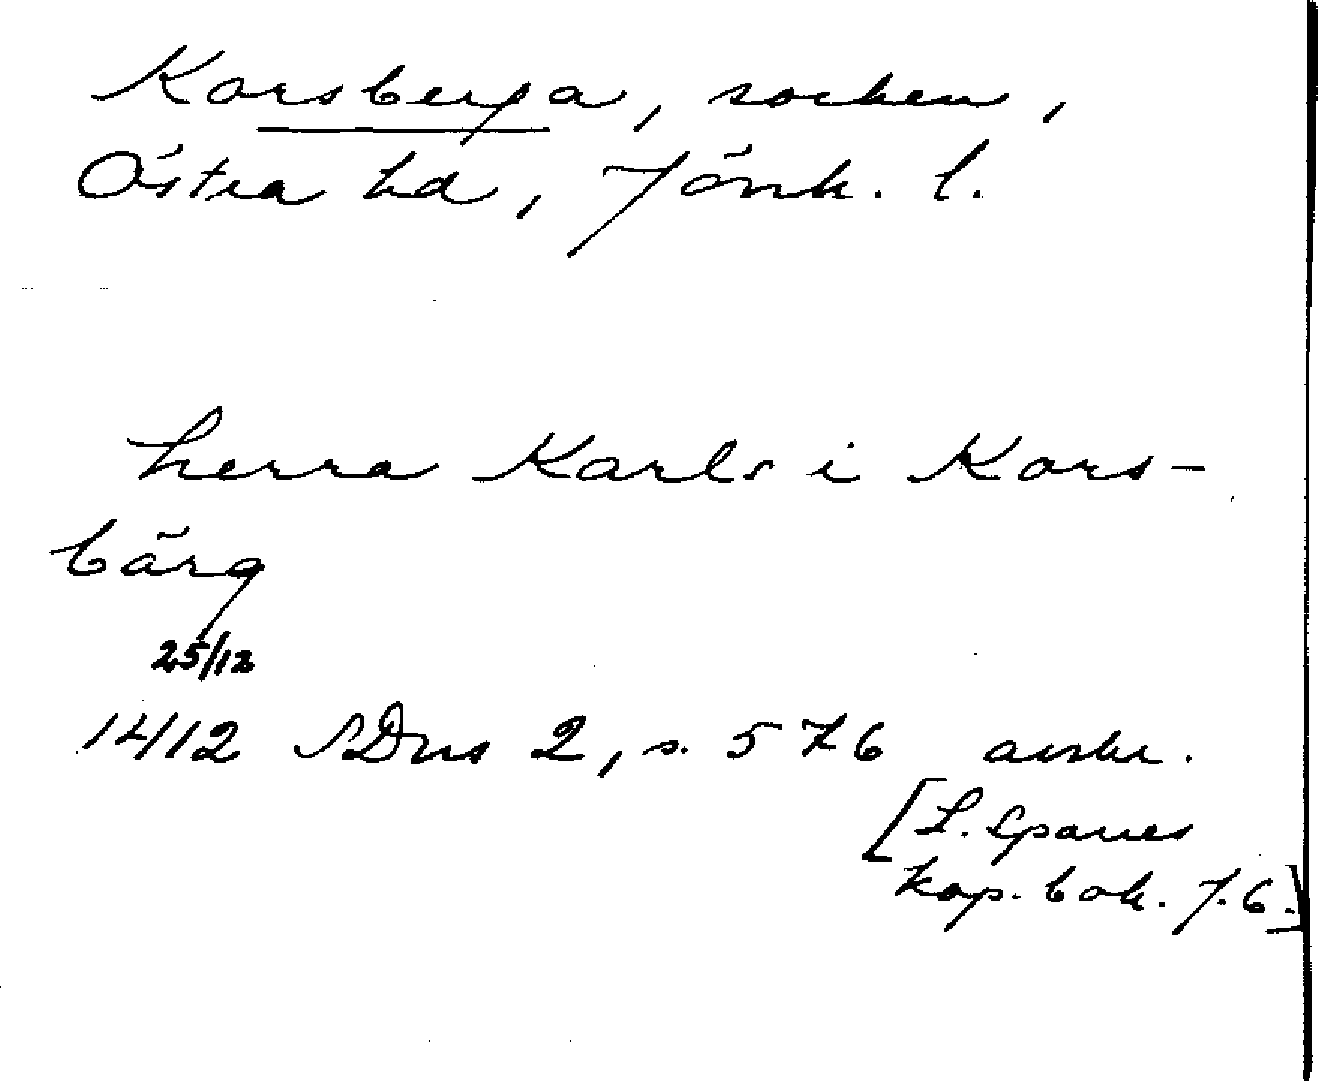 Korsberga, socken,
Östra hd, Jönk. l.
herra Karls i Kors-
bärg
25/12
1412 SDns 2, s. 576 avskr.
[L. Sparres
kop. bok. J. 6.]